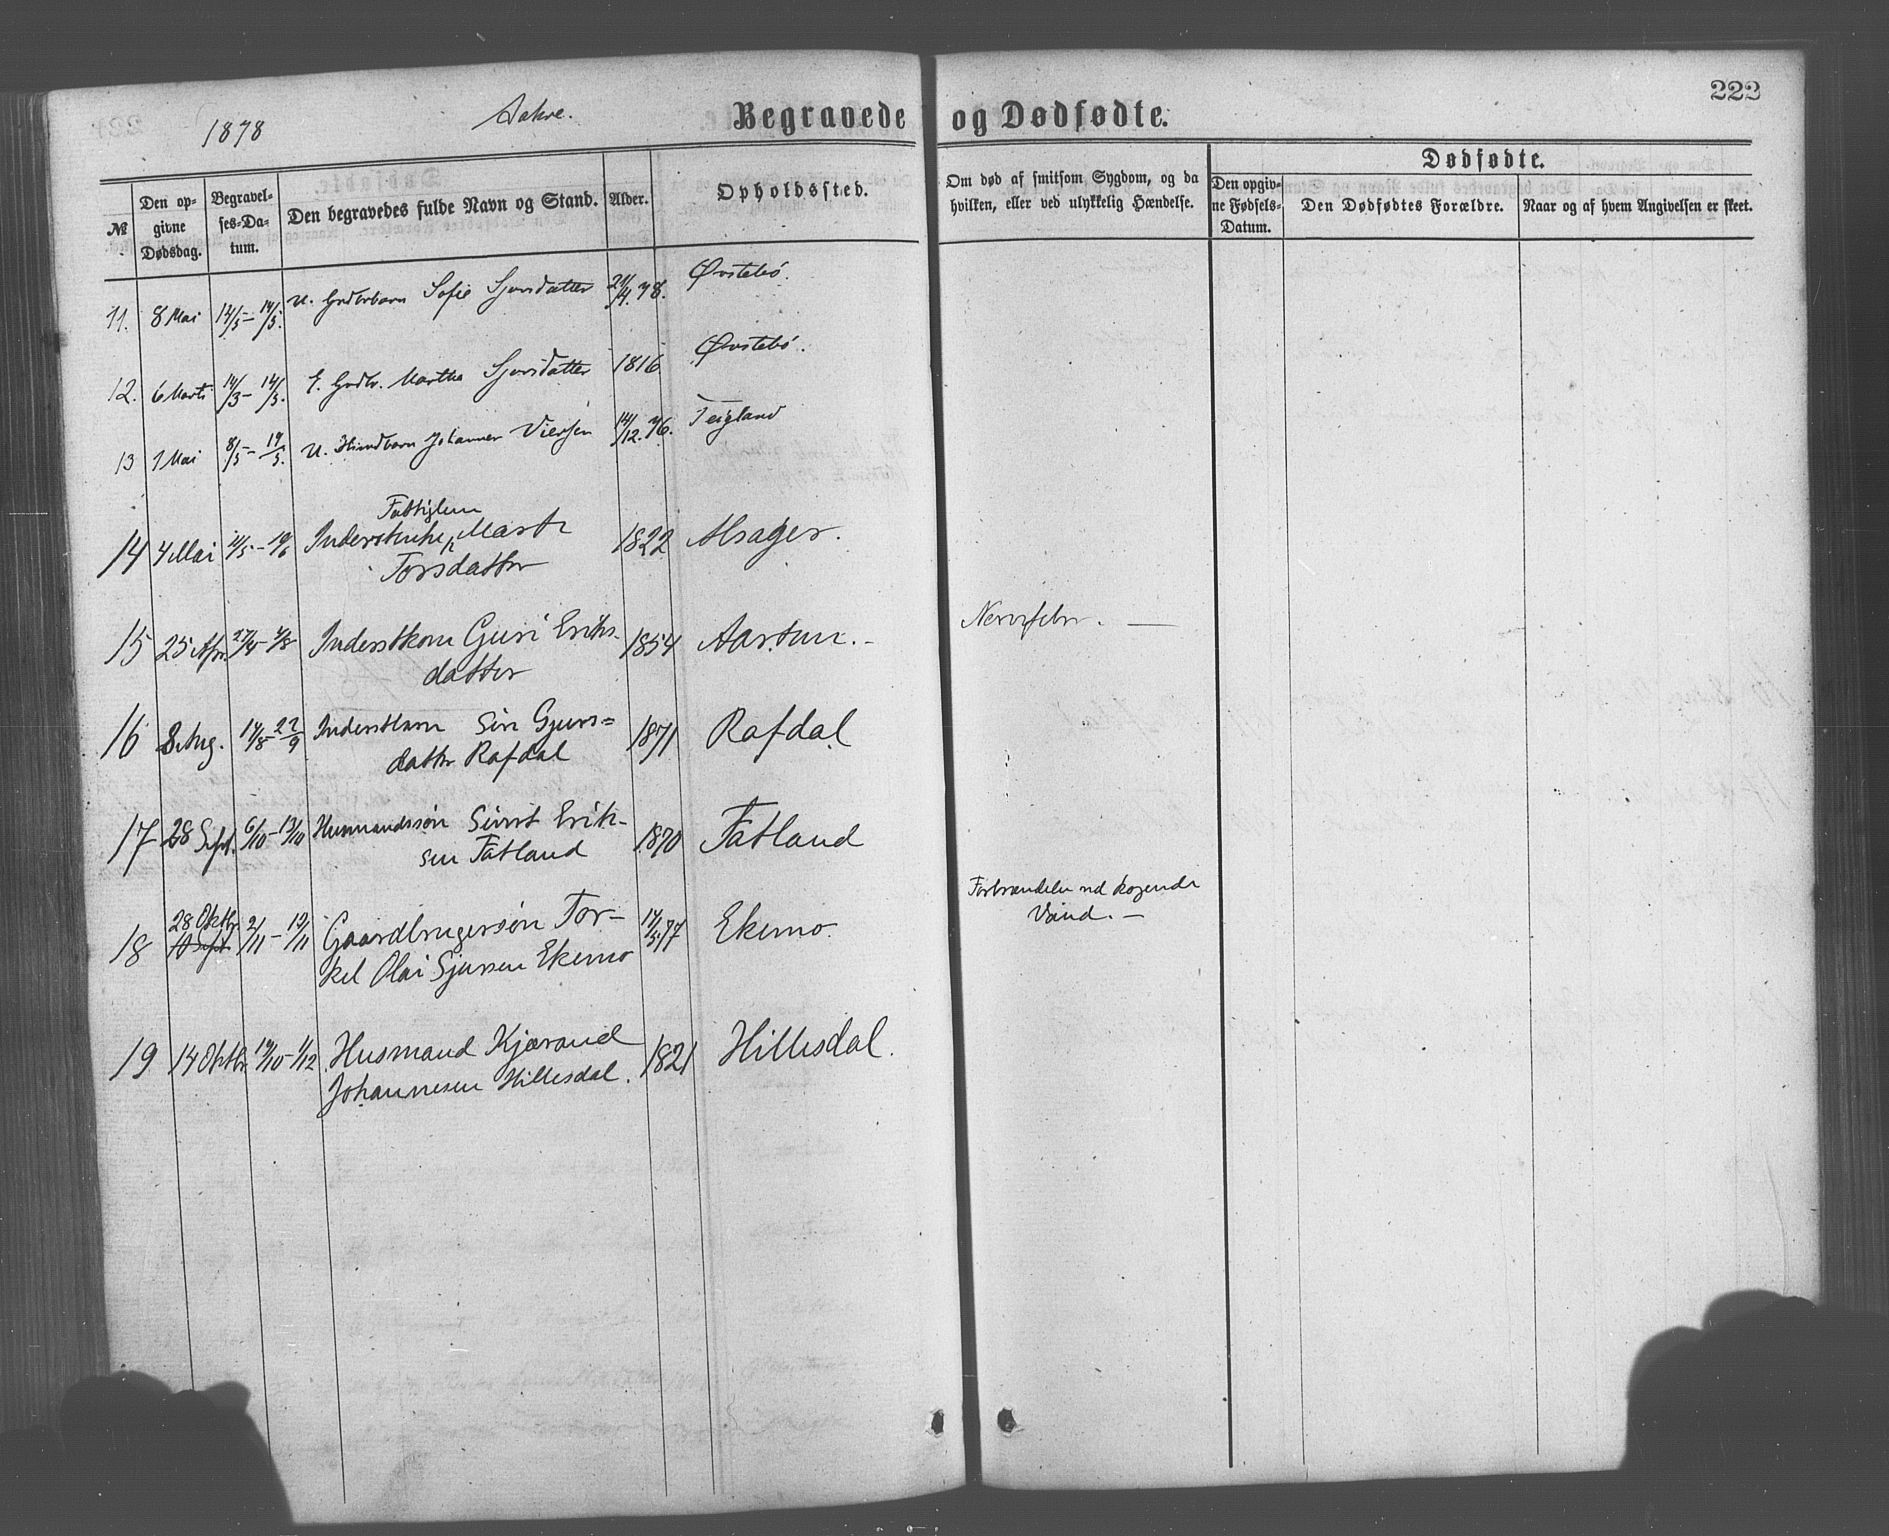 222
1878 Aakre.
Begravede og Dødfødte.
№
Den opgivne Dødsdag.
Begravelses-Datum.
Den begravedes fulde Navn og Stand.
Alder.
Opholdssted.
Om død af smitsom Sygdom, og da hvilken, eller ved ulykkelig Hændelse.
Dødfødte.
Den opgivne Fødsels-Datum.
Den Dødfødtes Forældre.
Naar og af hvem Angivelsen er skeet.
11. 8 Mai 14/5 – 14/5. U. Grdbrbarn Sofie Sjursdatter 4. 78. Øvstebø.
12. 6 Marts 14/3 – 14/5. E. Grdbr. Martha Sjursdatter 1816 Øvstebø.
13 1 Mai 8/5 – 19/5. U. Hsmdbarn Johannes 14/12. 76. Teigland
Fattiglem
14 4 Mai 11/5 – 10/6 Inderstenke Marta 1822 Alsager.
Torsdatter
15 25 Apr. 27/4 – Inderstkone Guri Eriks- 1854 Aartun. –
datter
Nervefeber. —
16 8 Aug. 17/8 – 22/9 Inderstbarn Siri Gjurs= 1871 Rafdal
datter Rafdal
17 28 Sept. 6/10 – 13/10 Husmandssøn Sivert Erik- 1870 Fatland
sen Fatland
28 Oktbr
18 10 Sept. 2/11 – 10/11 Gaardbrugersøn Tor- 17/5 77 Ekemo
kel Olai Sjursen Ekemo
Forbrændelse ved kogende
Vand. –
19 14 Oktbr. 19/10 – 1/12 Husmand Kjærand 1821 Hillesdal.
Johannesen Hillesdal.